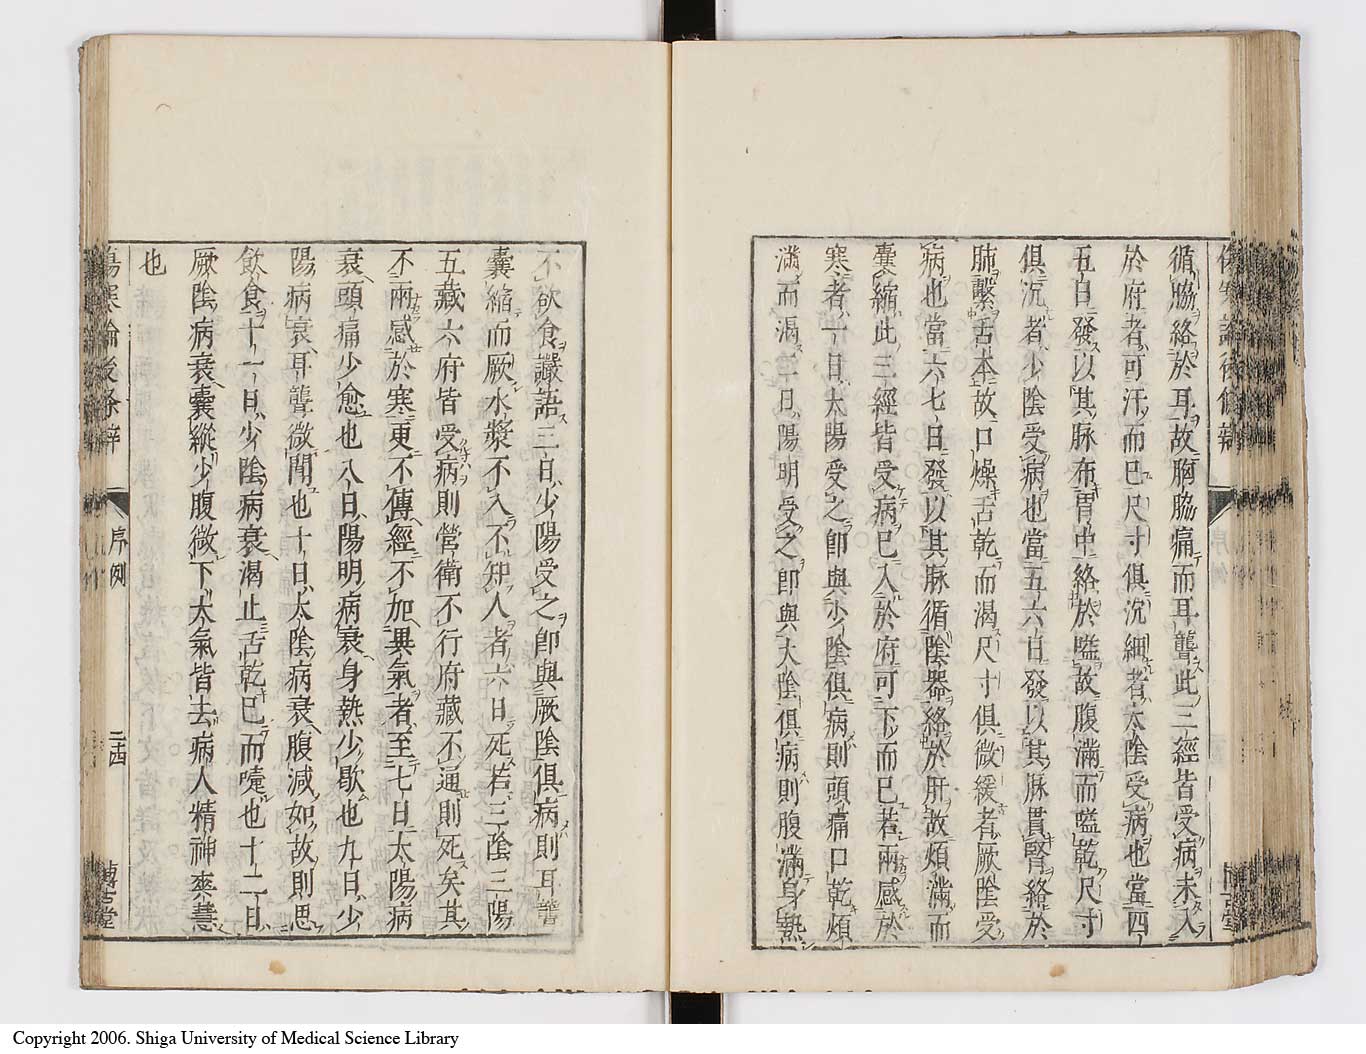 循脇絡於耳故胸脇痛而耳聾此三經皆受病未入
於府者可汗而已尺寸俱沉細者太陰受病也當四
五日發以其脉布胃中絡於嗌故腹滿而嗌乾尺寸
俱沉者少陰受病也當五六日發以其脉貫腎絡於
肺繫舌本故口燥舌乾而渴尺寸俱微緩者厥陰受
病也當六七日發以其脉循陰器絡於肝故煩滿而
囊縮此三經皆受病已入於府可下而已若兩感於
寒者一日太陽受之卽與少陰俱病則頭痛口乾煩
滿而渴二日陽明受之卽與太陰俱病則腹滿身熱
不欲食讝語三日少陽受之卽與厥陰俱病則耳聾
囊縮而厥水漿不入不知人者六日死若三陰三陽
五藏六府皆受病則營衛不行府藏不通則死矣其
不兩感於寒更不傳經不加異氣者至七日太陽病
衰頭痛少愈也八日陽明病衰身熱少歇也九日少
陽病衰耳聾微聞也十日太陰病衰腹減如故則思
飲食十一日少陰病衰渴止舌乾已而嚏也十二日
厥陰病衰囊縱少腹微下大氣皆去病人精神爽慧
也
傷寒論後條辨 序例 二十四 博古堂
Copyright 2006. Shiga University of Medical Science Library